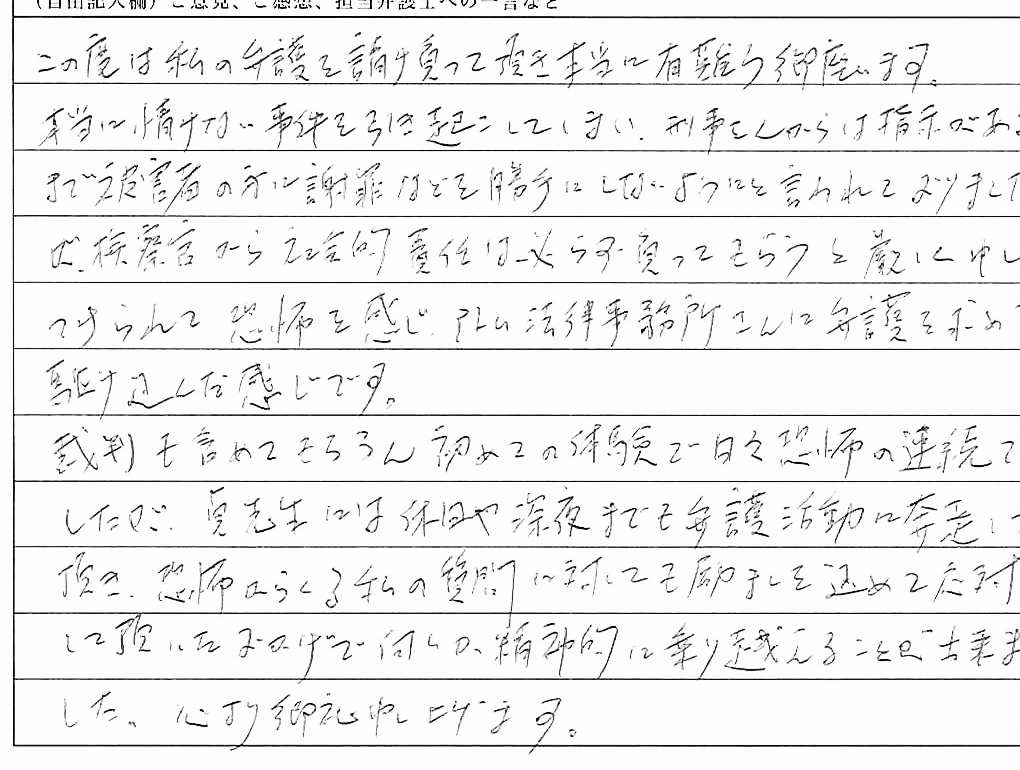 （自由記入欄）ご意見、ご感想、担当弁護士への一言など
この度は私の弁護を請け負って頂き本当に有難う御座います。
本当に情けない事件を引き起こしてしまい、刑事さんからは指示があ
まで被害者の方に謝罪などを勝手にしないようにと言われておりました
が、検察官から社会的責任は必らず負ってもらうと厳しく申し
つけられて恐怖を感じ、アトム法律事務所さんに弁護を求め
駆け込んだ感じです。
裁判も含めてもちろん初めての体験で日々恐怖の連続で
したが、貞先生には休日や深夜までも弁護活動に奔走して
頂き、恐怖からくる私の質問に対しても励ましを込めて応対
して頂いたおかげで何とか精神的に乗り越えることが出来ま
した。心より御礼申し上げます。